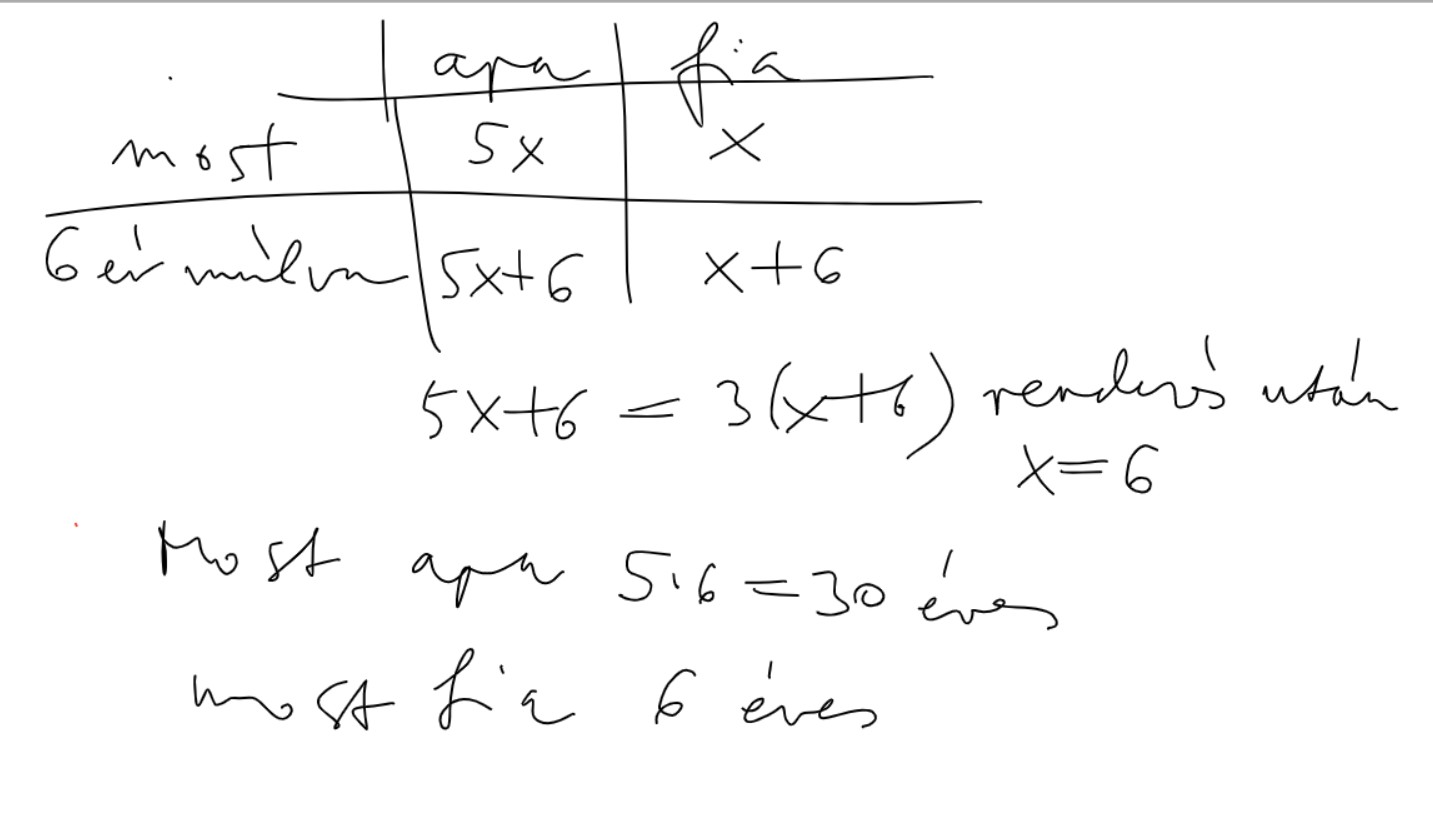 apa fia
most 5x x
6 év múlva 5x+6 x+6
5x+6 = 3(x+6) rendezés után
x=6
Most apa 5·6=30 éves
most fia 6 éves